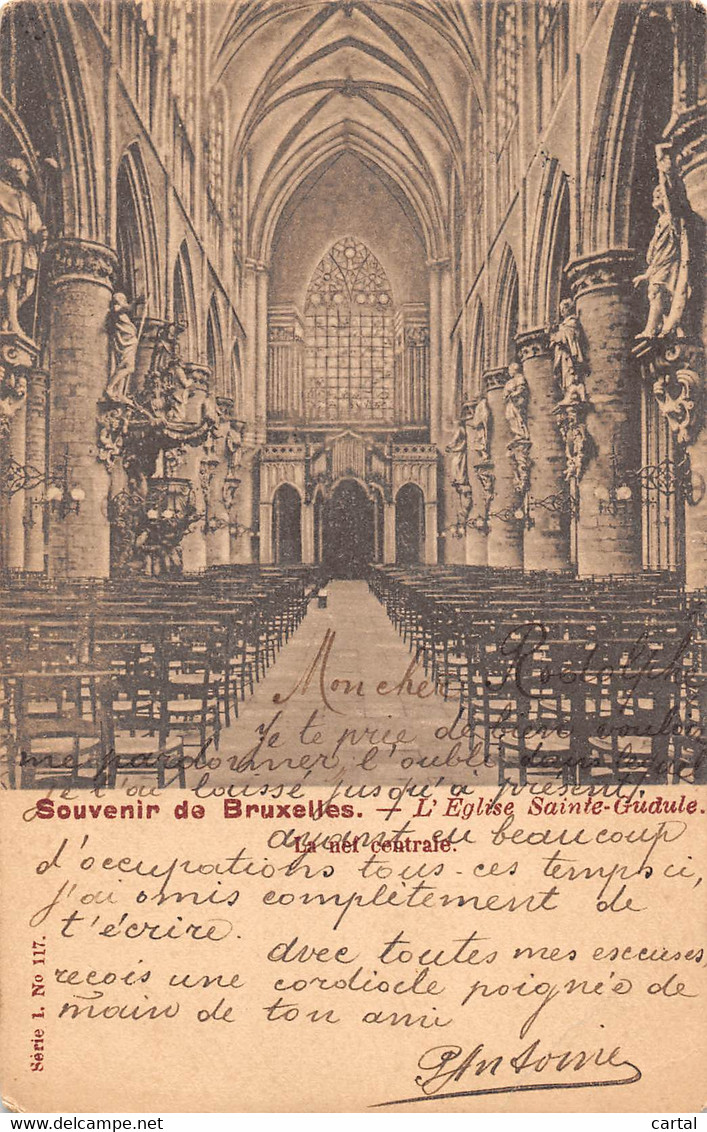 Mon cher Rodolphe
Je te prie de bien vouloir
me pardonner l'oubli dans lequel
je t'ai laissé jusqu'à présent,
Souvenir de Bruxelles. — L'Eglise Sainte-Gudule.
La nef centrale.
ayant eu beaucoup
d'occupations tous-ces temps ci,
j'ai omis complètement de
t'écrire.
avec toutes mes excuses,
reçois une cordiale poignée de
main de ton ami
Antoine
Série 1. No 117.
delcampe.net
cartal